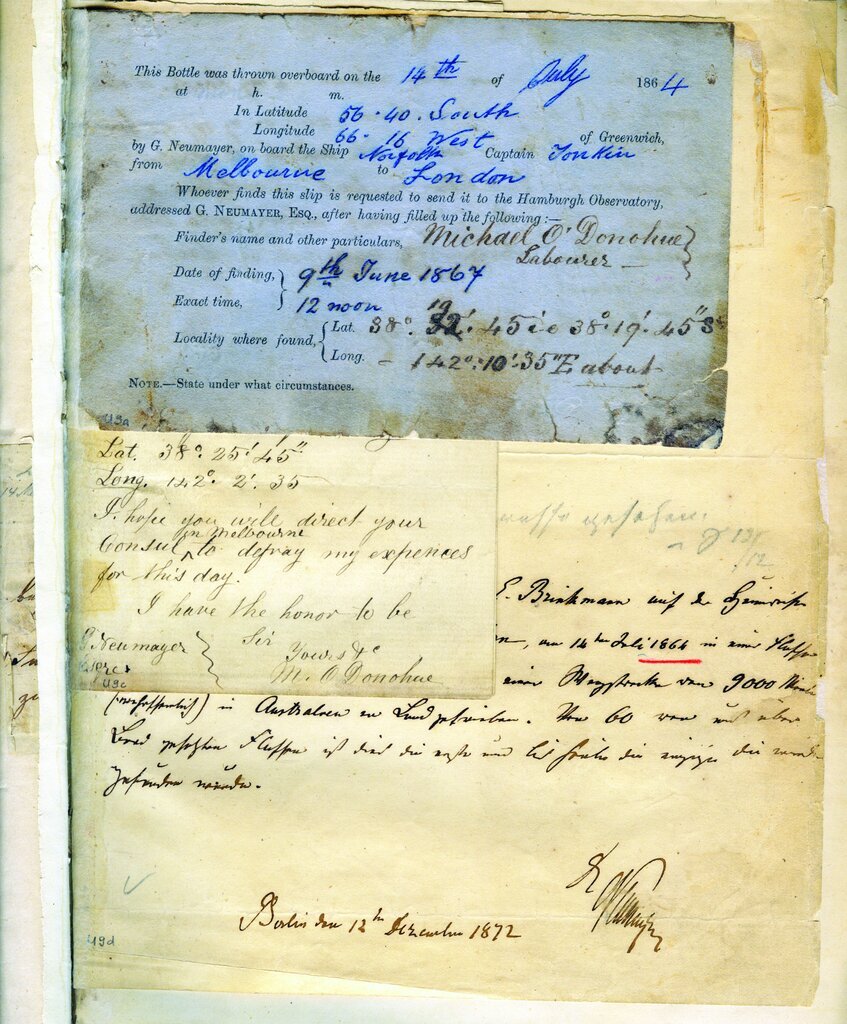 This Bottle was thrown overboard on the 14th of July 1864
at h. m.
In Latitude 56 . 40 . South
Longitude 66 . 16 West of Greenwich,
by G. Neumayer, on board the Ship Norfolk Captain Tonkin
from Melbourne to London
Whoever finds this slip is requested to send it to the Hamburgh Observatory,
addressed G. NEUMAYER, ESQ., after having filled up the following:—
Finder's name and other particulars, Michael O'Donohue
Labourer
Date of finding, 9th June 1867
Exact time, 12 noon
Locality where found, Lat. 38° 32' 19 . 45 i e 38° 19' . 45" S
Long. - 142° . 10' . 35" E about
NOTE.—State under what circumstances.
49a
Lat. 38° 25' 45"
Long. 142° 2' 35
I hope you will direct your
Consul in Melbourne to defray my expences
for this day.
I have the honor to be
Sir
G Neumayer Yours &c
M. O'Donohue
49c
E. Brinkmann auf der
14ten Juli 1864 in einer
einer 9000
in Australien an Land getrieben. Von 60 von uns über
Bord gesetzten ist dies die erste und bis die einzige die
gefunden wurde.
Berlin den 12th Dezember 1872
49d